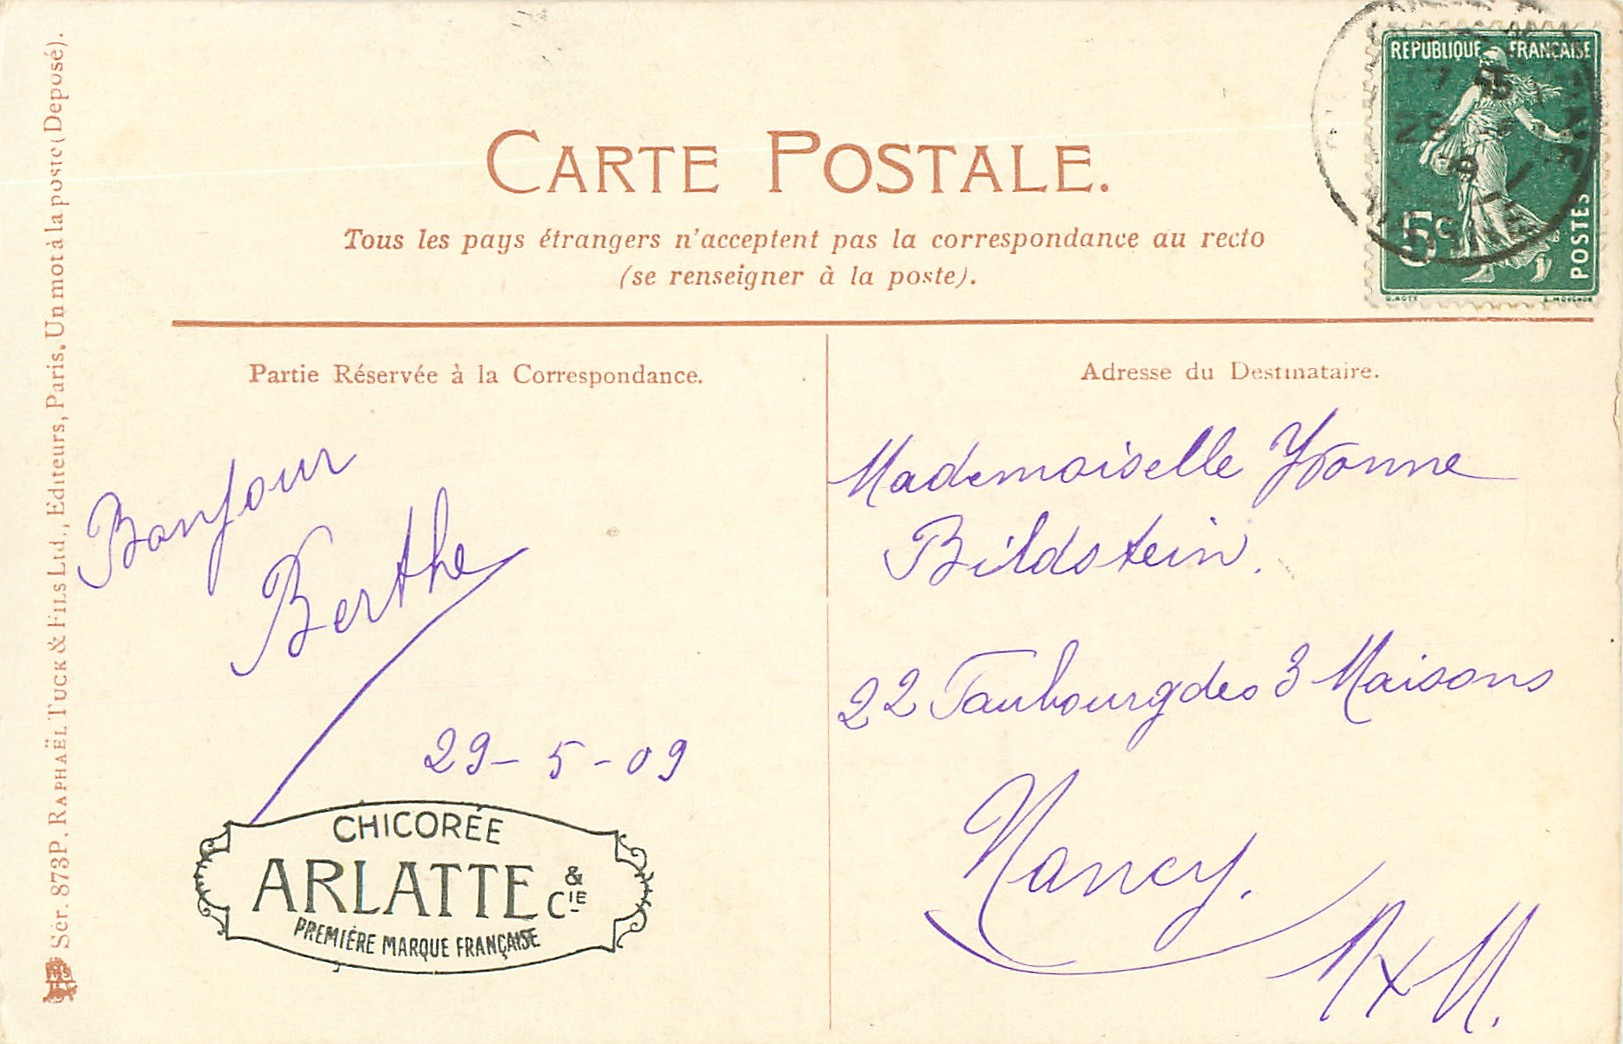 CARTE POSTALE.
Tous les pays étrangers n'acceptent pas la correspondance au recto
(se renseigner à la poste).
REPUBLIQUE FRANÇAISE
5c
POSTES
Partie Réservée à la Correspondance.
Bonjour
Berthe
29-5-09
CHICORÉE
ARLATTE & CIE
PREMIÈRE MARQUE FRANÇAISE
Adresse du Destinataire.
Mademoiselle Yvonne
Bildstein.
22 Faubourg des 3 Maisons
Nancy.
M x M.
Sér. 873P. RAPHAËL TUCK & FILS Ltd., Editeurs, Paris. Un mot à la poste (Deposé).